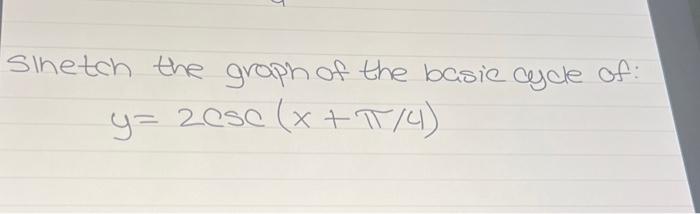 Sketch the graph of the basic cycle of:
y= 2csc (x + π/4)